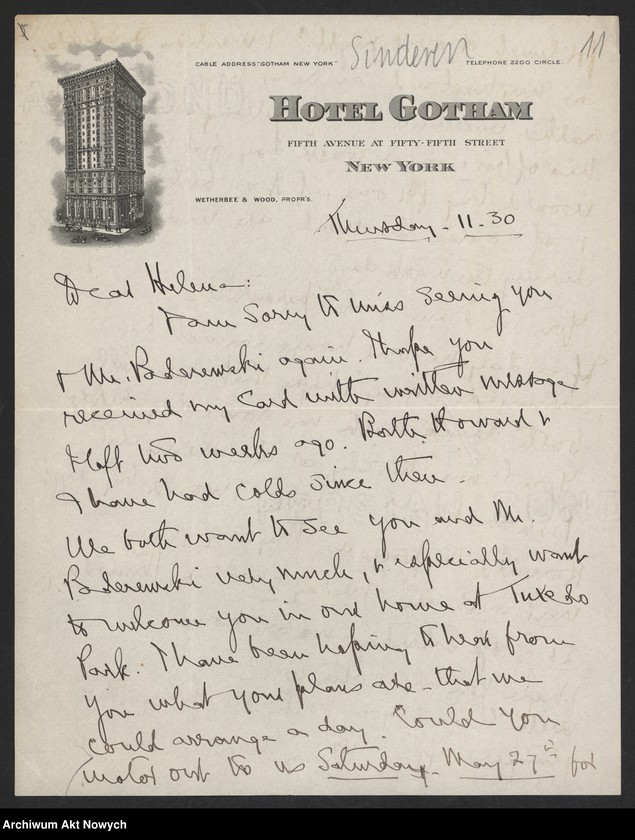 Sinderen
11
CABLE ADDRESS "GOTHAM NEW YORK"
TELEPHONE 2200 CIRCLE.
HOTEL GOTHAM
FIFTH AVENUE AT FIFTY-FIFTH STREET
NEW YORK
WETHERBEE & WOOD, PROPR'S.
Thursday - 11.30
Dear Helena:
I am sorry to miss seeing you
& Mr. Paderewski again. I hope you
received my card with written message
I left two weeks ago. Both Howard &
I have had colds since then.
We both want to see you and Mr.
Paderewski very much, & especially want
to welcome you in our home at Tuxedo
Park. I have been hoping to hear from
you what your plans are - that we
could arrange a day. Could you
motor out to us Saturday. May 27th for
Archiwum Akt Nowych